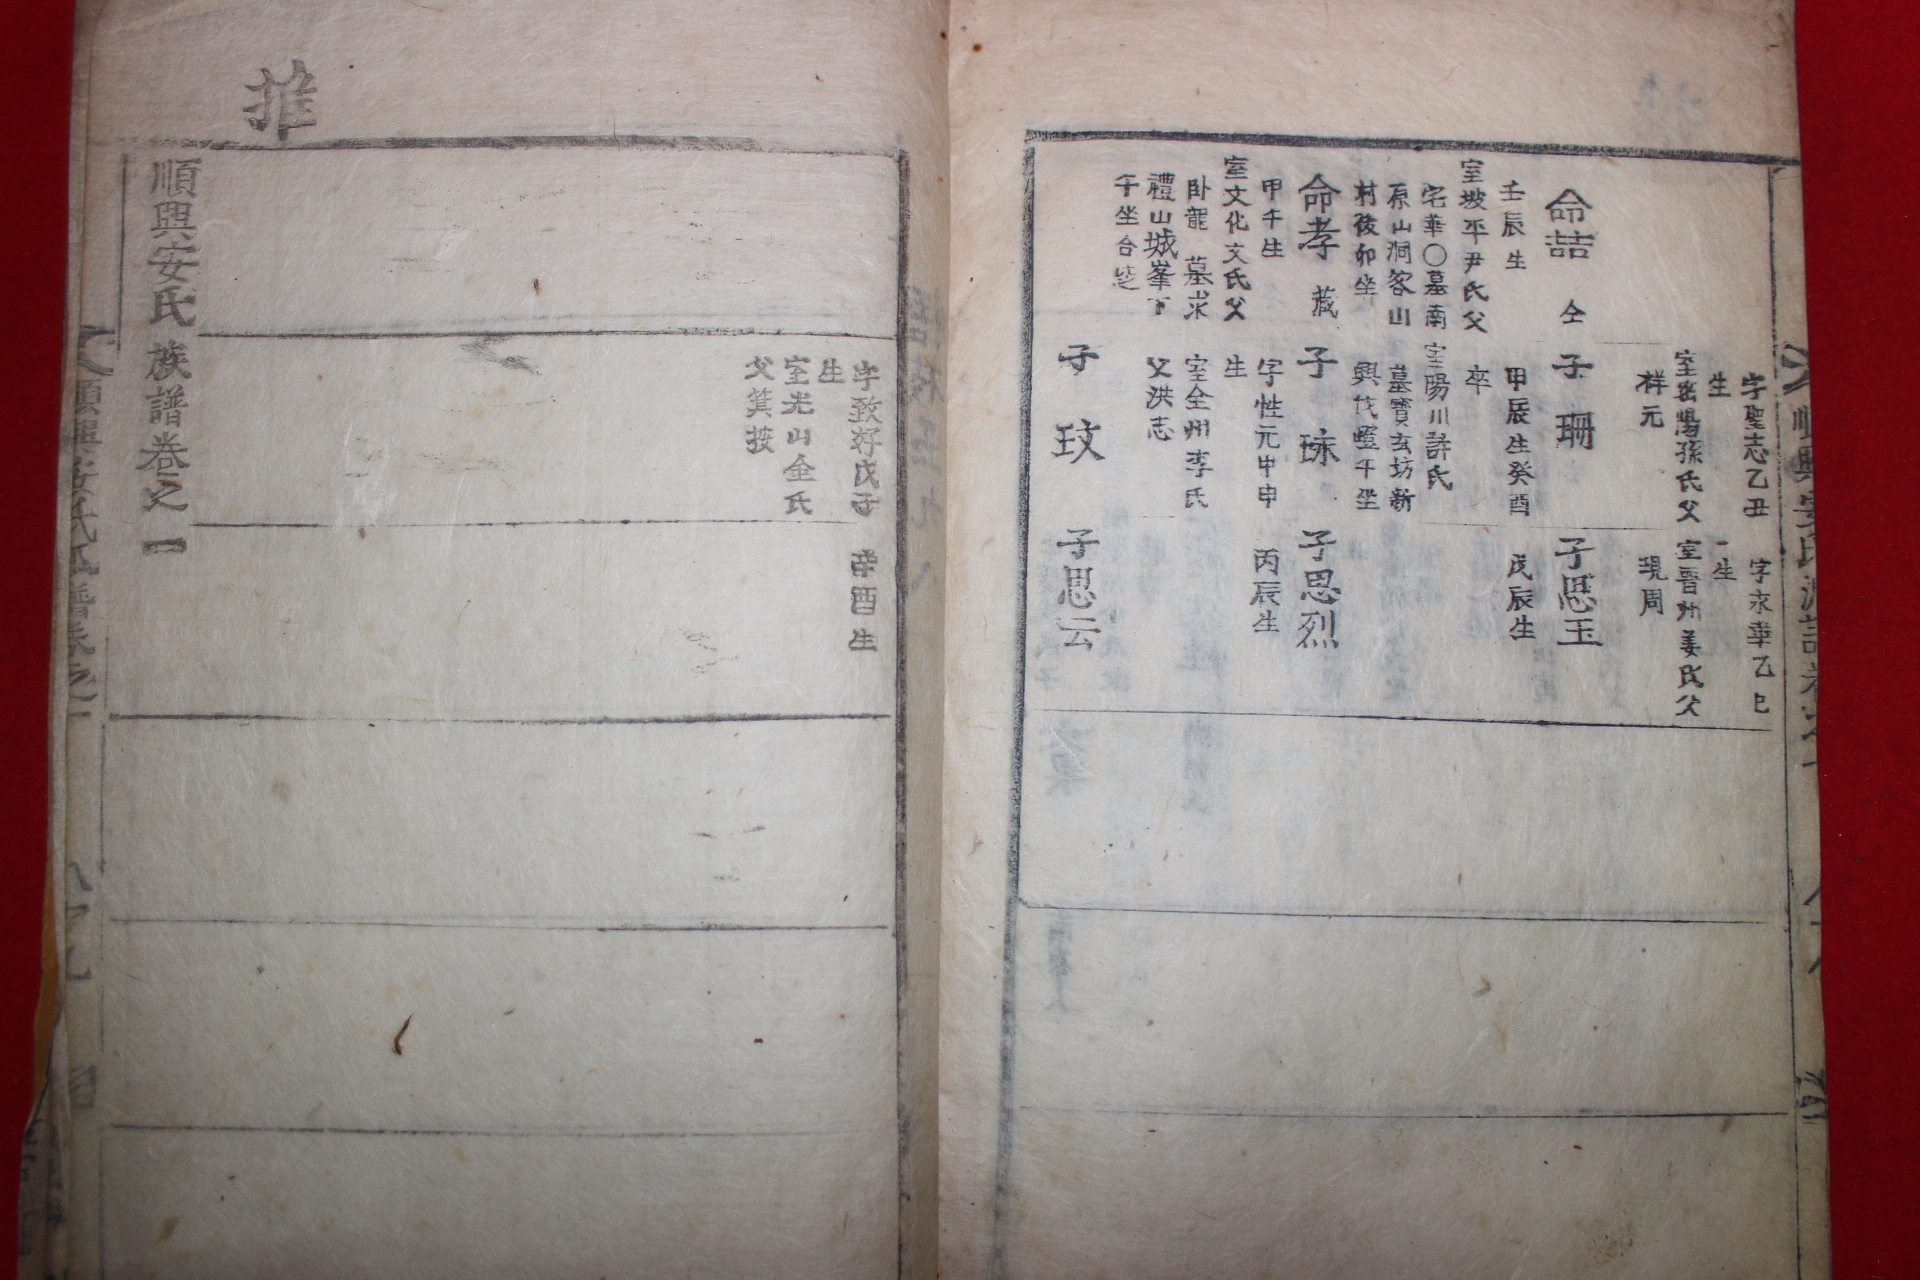 字聖志乙丑
生
室密陽孫氏父
祥元
字永華乙巳
生
室晋州姜氏父
現周
命喆
仝
壬辰生
室坡平尹氏父
宅華〇墓南
原山洞客山
村後卯坐
子珊
甲辰生癸酉
卒
室陽川許氏
墓寶玄坊新
興伐嶝午坐
子思玉
戊辰生
命孝
蕆
甲午生
室文化文氏父
卧龍 墓求
禮山城峯下
午坐合兆
子珠
字性元甲申
生
室全州李氏
父洪志
子思烈
丙辰生
子玟
子思云
字致好戊子
生
室光山金氏
父箕按
辛酉生
推
順興安氏族譜卷之一